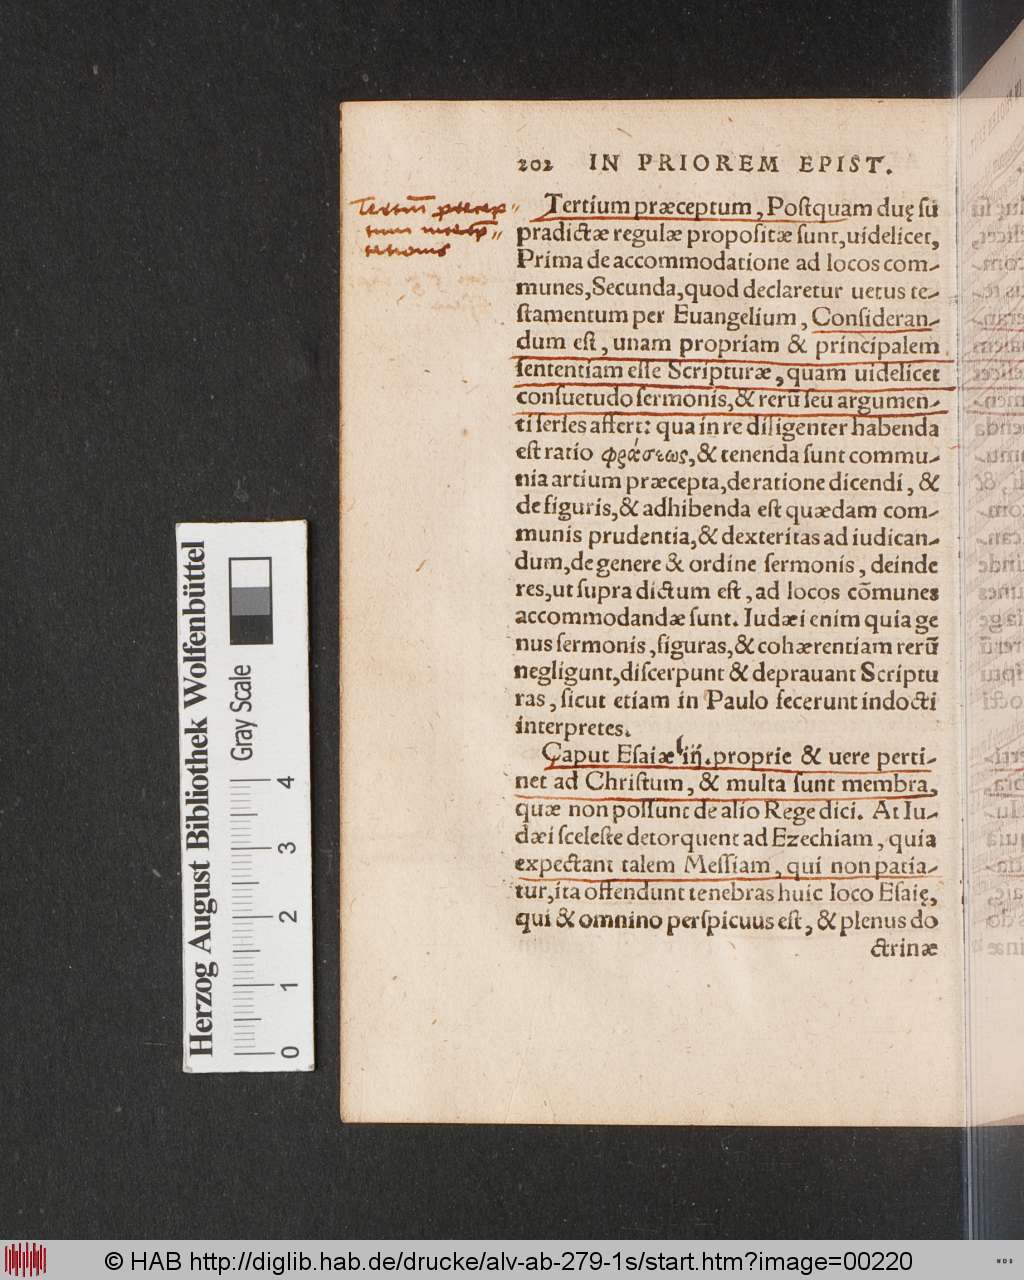 202 IN PRIOREM EPIST.
Tertiū precep-
tum interp̄-
tationis
Tertium præceptum, Postquam duę su
pradictæ regulæ propositæ sunt, uidelicet,
Prima de accommodatione ad locos com-
munes, Secunda, quod declaretur uetus te-
stamentum per Euangelium, Consideran-
dum est, unam propriam & principalem
sententiam esse Scripturæ, quam uidelicet
consuetudo sermonis, & rerū seu argumen-
ti series affert: qua in re diligenter habenda
est ratio φράσεως, & tenenda sunt commu-
nia artium præcepta, de ratione dicendi, &
de figuris, & adhibenda est quædam com-
munis prudentia, & dexteritas ad iudican-
dum, de genere & ordine sermonis, deinde
res, ut supra dictum est, ad locos cōmunes
accommodandæ sunt. Iudæi enim quia ge
nus sermonis, figuras, & cohærentiam rerū
negligunt, discerpunt & deprauant Scriptu
ras, sicut etiam in Paulo fecerunt indocti
interpretes.
Caput Esaiæ liij. proprie & uere perti-
net ad Christum, & multa sunt membra,
quæ non possunt de alio Rege dici. At Iu-
dæi sceleste detorquent ad Ezechiam, quia
expectant talem Messiam, qui non patia-
tur, ita offendunt tenebras huic loco Esaię,
qui & omnino perspicuus est, & plenus do
ctrinæ
Herzog August Bibliothek Wolfenbüttel
Gray Scale
0 1 2 3 4
© HAB http://diglib.hab.de/drucke/alv-ab-279-1s/start.htm?image=00220